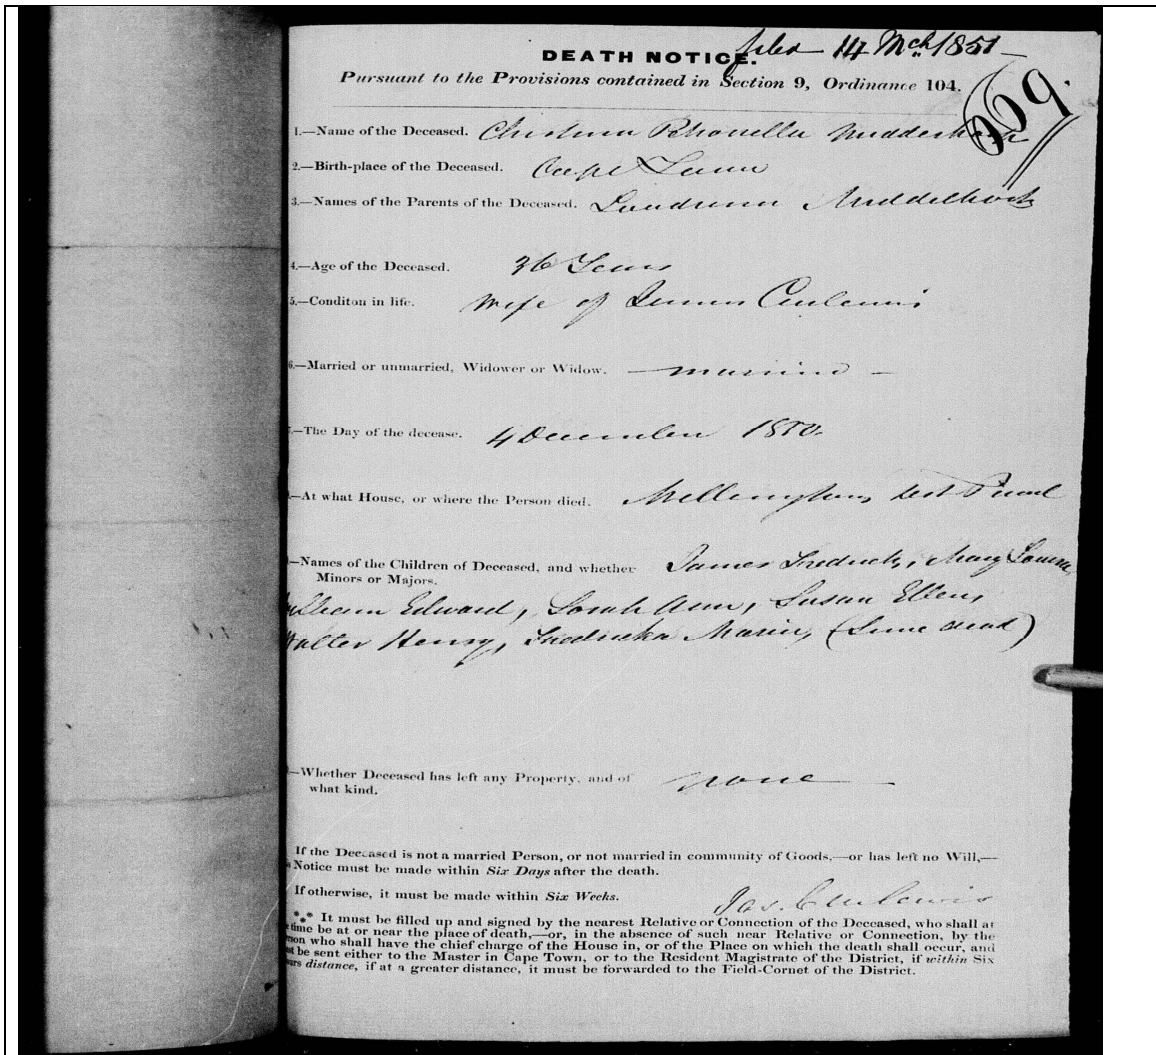 filed 14 Mch 1851
DEATH NOTICE.
Pursuant to the Provisions contained in Section 9, Ordinance 104.
669.
1.—Name of the Deceased. Christina Petronella
2.—Birth-place of the Deceased. Cape Town
3.—Names of the Parents of the Deceased. Middelkock
4.—Age of the Deceased. 36 Years
5.—Conditon in life. Wife of James
6.—Married or unmarried, Widower or Widow. — married —
—The Day of the decease. 4 December 1850.
—At what House, or where the Person died. Wellington
—Names of the Children of Deceased, and whether James Fredrick, Mary
Minors or Majors.
William Edward, Sarah Ann, Susan Ellen,
Walter Henry, Fredricka Maria, (Since dead)
—Whether Deceased has left any Property, and of none
what kind.
If the Deceased is not a married Person, or not married in community of Goods,—or has left no Will,—
Notice must be made within Six Days after the death.
If otherwise, it must be made within Six Weeks. Jas.
*** It must be filled up and signed by the nearest Relative or Connection of the Deceased, who shall at
time be at or near the place of death,—or, in the absence of such near Relative or Connection, by the
who shall have the chief charge of the House in, or of the Place on which the death shall occur, and
be sent either to the Master in Cape Town, or to the Resident Magistrate of the District, if within Six
distance, if at a greater distance, it must be forwarded to the Field-Cornet of the District.